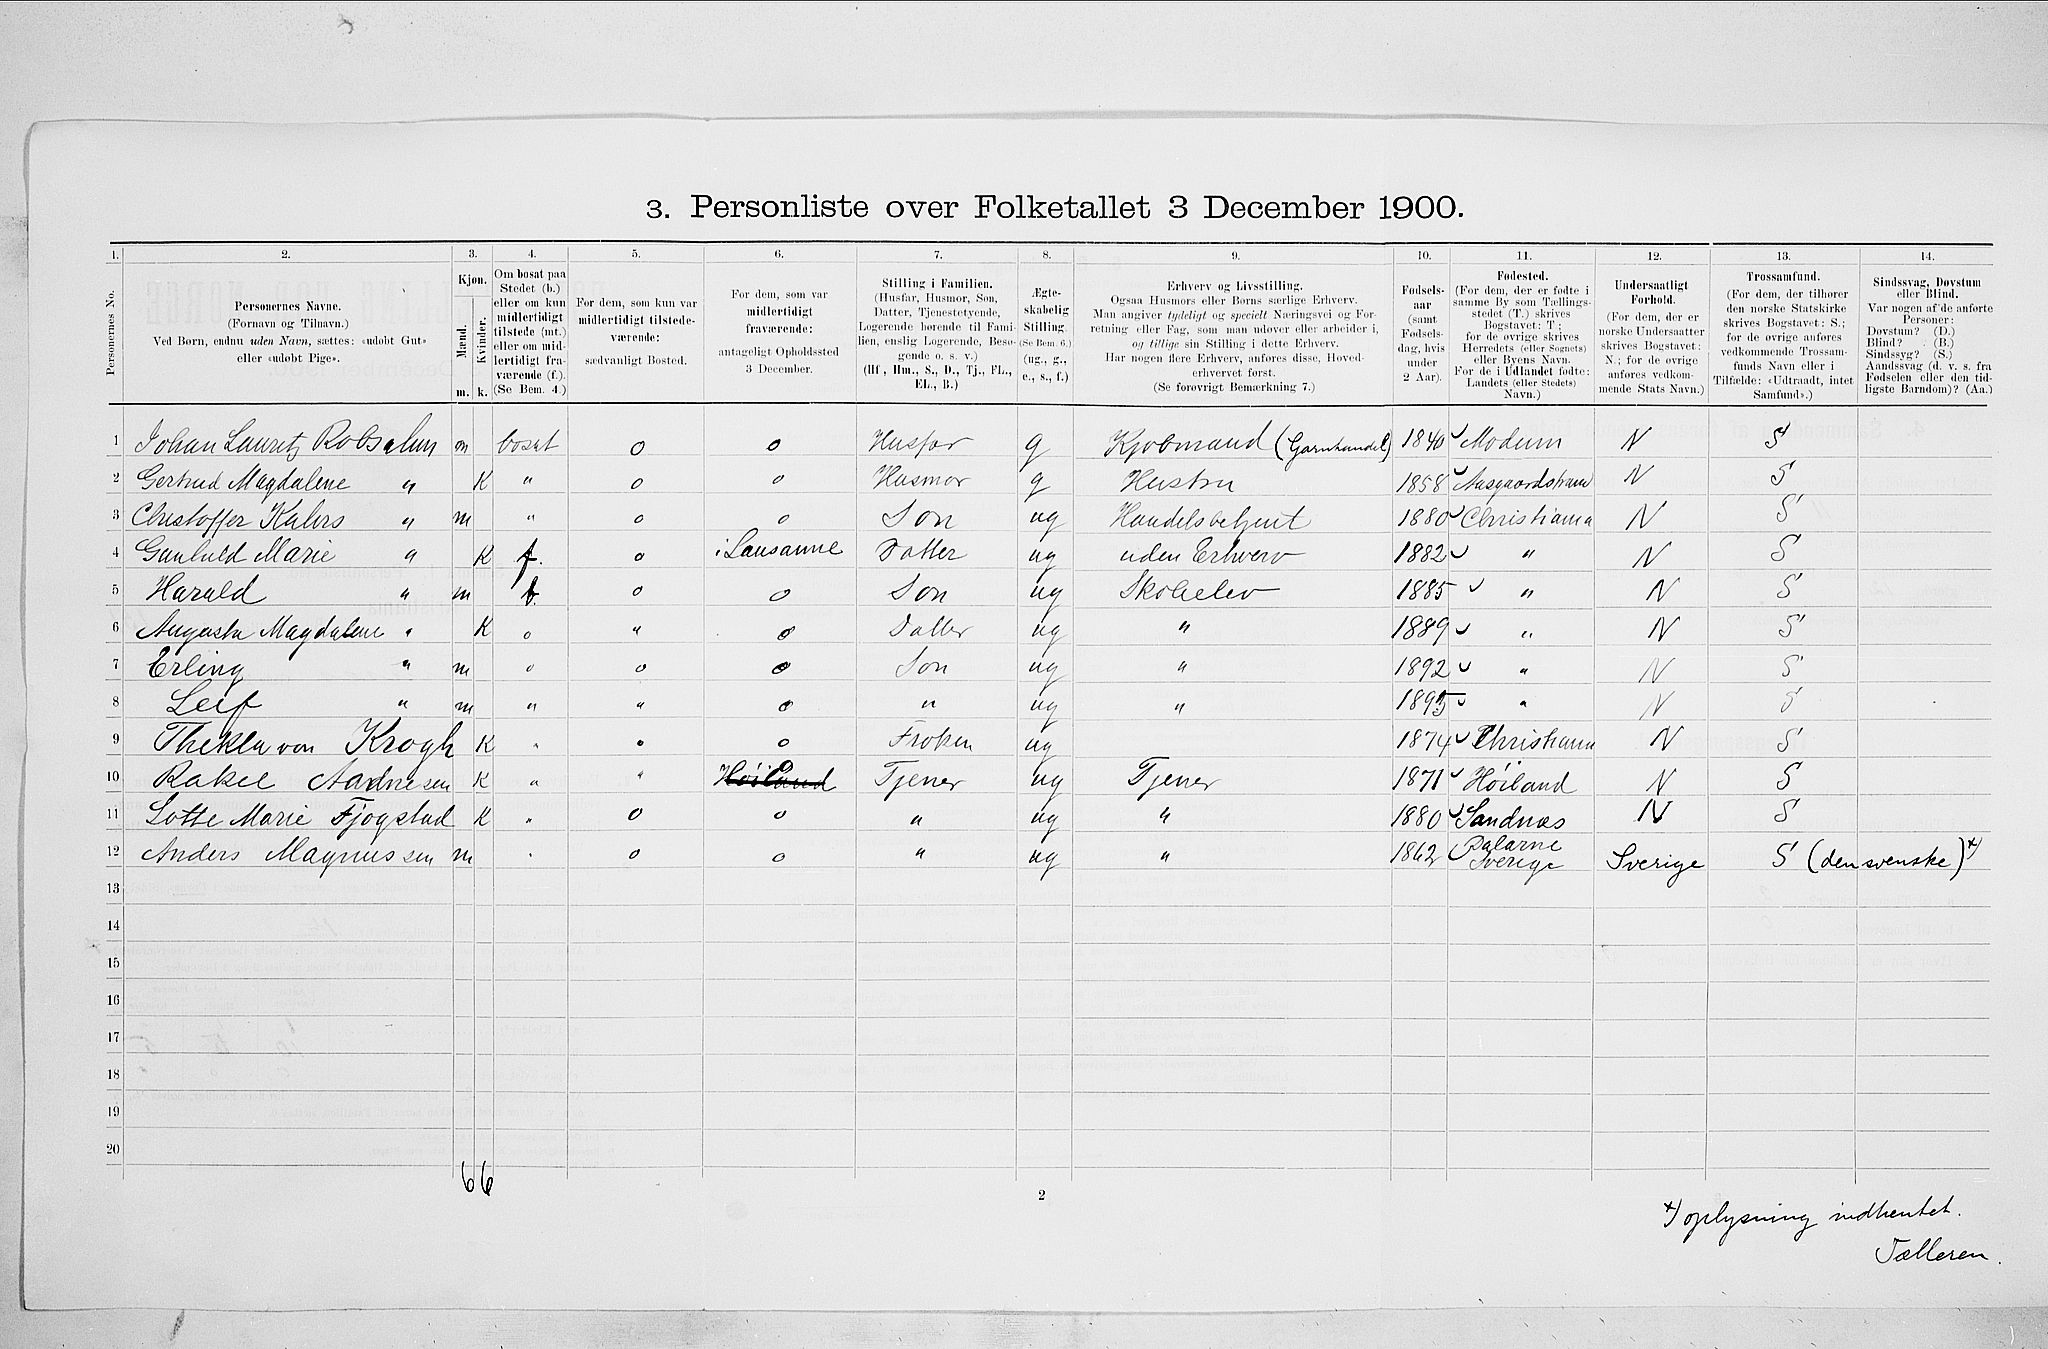 3. Personliste over Folketallet 3 December 1900.
1. 2. 3. 4. 5. 6. 7. 8. 9. 10. 11. 12. 13. 14.
Personernes No.
Personernes Navne.
(Fornavn og Tilnavn.)
Ved Børn, endnu uden Navn, sættes: «udøbt Gut»
eller «udøbt Pige».
Kjøn.
Mænd.
Kvinder.
m. k.
Om bosat paa
Stedet (b.)
eller om kun
midlertidigt
tilstede (mt.)
eller om mid-
lertidigt fra-
værende (f.).
(Se Bem. 4.)
For dem, som kun var
midlertidigt tilstede-
værende:
sædvanligt Bosted.
For dem, som var
midlertidigt
fraværende:
antageligt Opholdssted
3 December.
Stilling i Familien.
(Husfar, Husmor, Søn,
Datter, Tjenestetyende,
Logerende hørende til Fami-
lien, enslig Logerende, Besø-
gende o. s. v.)
(Hf, Hm., S., D., Tj., FL.,
EL., B.)
Ægte-
skabelig
Stilling.
(Se Bem. 6.)
(ug., g.,
e., s., f.)
Erhverv og Livsstilling.
Ogsaa Husmors eller Børns særlige Erhverv.
Man angiver tydeligt og specielt Næringsvei og For-
retning eller Fag, som man udøver eller arbeider i,
og tillige sin Stilling i dette Erhverv.
Har nogen flere Erhverv, anføres disse, Hoved-
erhvervet først.
(Se forøvrigt Bemærkning 7.)
Fødsels-
aar
(samt
Fødsels-
dag, hvis
under
2 Aar).
Fødested.
(For dem, der er fødte i
samme By som Tællings-
stedet (T.) skrives
Bogstavet: T;
for de øvrige skrives
Herredets (eller Sognets)
eller Byens Navn.
For de i Udlandet fødte:
Landets (eller Stedets)
Navn.)
Undersaatligt
Forhold.
(For dem, der er
norske Undersaatter
skrives Bogstavet:
N.; for de øvrige
anføres vedkom-
mende Stats Navn.)
Trossamfund.
(For dem, der tilhører
den norske Statskirke
skrives Bogstavet: S.;
for de øvrige anføres
vedkommende Trossam-
funds Navn eller i
Tilfælde: «Udtraadt, intet
Samfund».)
Sindssvag, Døvstum
eller Blind.
Var nogen af de anførte
Personer:
Døvstum? (D.)
Blind? (B.)
Sindssyg? (S.)
Aandssvag (d. v. s. fra
Fødselen eller den tid-
ligste Barndom)? (Aa.)
1 Johan Lauritz Robsahm m bosat o o Husfar g Kjøbmand (Garnhandel) 1840 Modum N S
2 Gertrud Magdalene " K " o o Husmor g Hustru 1858 Aasgaardstrand N S
3 Christoffer Kahrs " m " o o Søn ug Handelsbetjent 1880 Christiania N S
4 Marie " K f. o i Lausanne Datter ug uden Erhverv 1882 " N S
5 Harald " m b. o o Søn ug Skoleelev 1885 " N S
6 Augusta Magdalene " K o " o Datter ug " 1889 " N S
7 Erling " m o o o Søn ug " 1892 " N S
8 Leif " m " " o " ug " 1895 " N S
9 Thekla von Krogh K " o o Frøken ug 1874 Christiania N S
10 Rakel K " " Høiland Tjener ug Tjener 1871 Høiland N S
11 Lotte Marie Fjogstad K " o o " ug " 1880 Sandnæs N S
12 Anders Magnussen m " o o " ug " 1862 Dalarne
Sverige Sverige S (den svenske) *)
13
14
15
16
17
18
19
20
6 6
2
*) oplysning indhentet.
Tælleren.